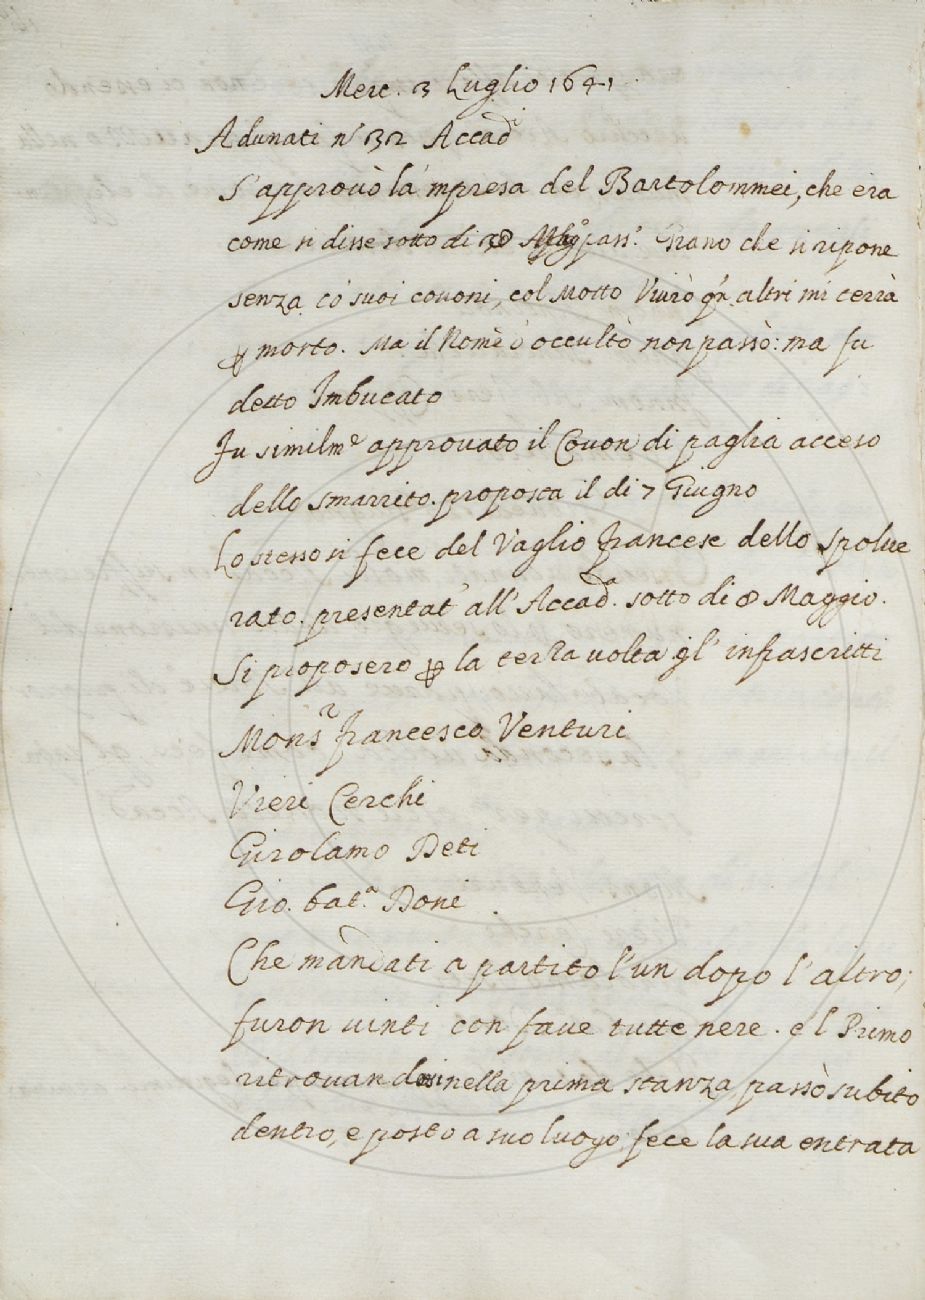 Merc. 3 Luglio 1641.
Adunati n.° 32 Accad.ⁱ
S'approvò la 'mpresa del Bartolommei, che era
come si disse sotto di 30 pass.° Grano che si ripone
senza co' suoi covoni, col Motto Vivrò qñ altri mi terrà
ꝑ morto. Ma il Nome d'occulto non passò: ma fu
detto Imbucato
Fu similm.ᵉ approvato il Covon di paglia acceso
dello Smarrito. proposta il dì 7 Giugno
Lo stesso si fece del Vaglio franzese dello Spolve
rato. presentat' all'Accad.ᵃ sotto dì 8 Maggio.
Si proposero ꝑ la terza volta gl' infrascritti
Mons.ʳ Francesco Venturi
Vieri Cerchi
Girolamo Deti
Gio. Bat.ᵃ Doni.
Che mandati a partito l'un dopo l'altro;
furon vinti con fave tutte nere. e'l Primo
ritrovandosi nella prima stanza, passò subito
dentro, e posto a suo luogo fece la sua entrata